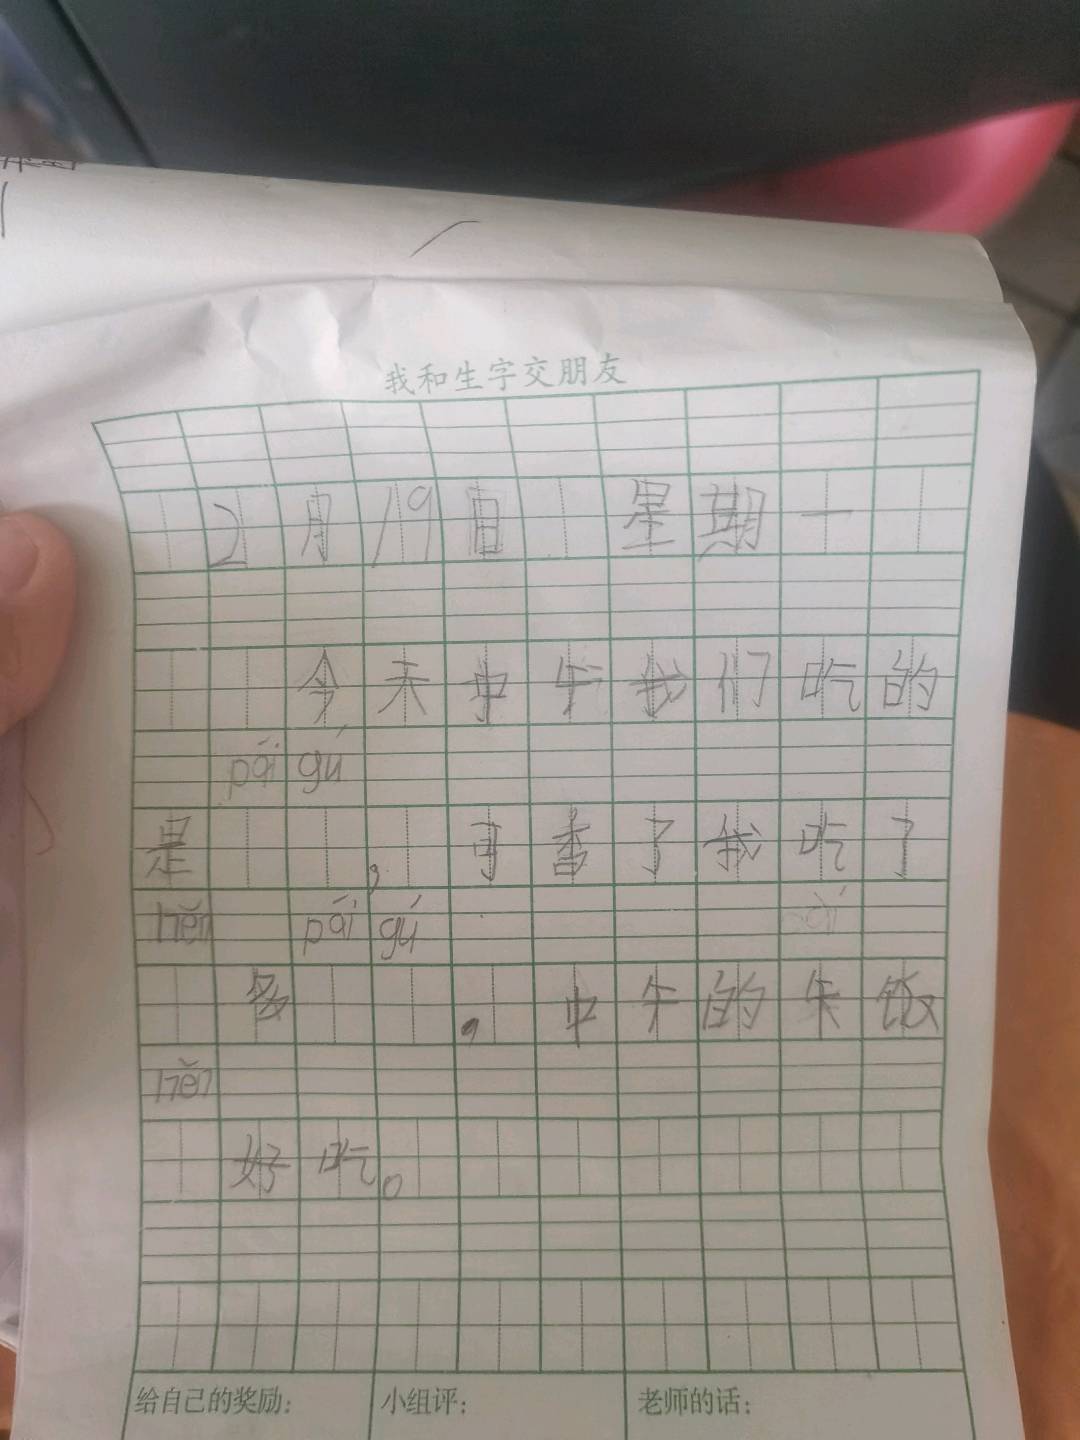 我和生字交朋友
2月19日 星期一
今天中午我们吃的
pái gú
是 , 可香了我吃了
hěn pái gú
多 , 中午的午饭
hěn
好吃。
给自己的奖励: 小组评: 老师的话: